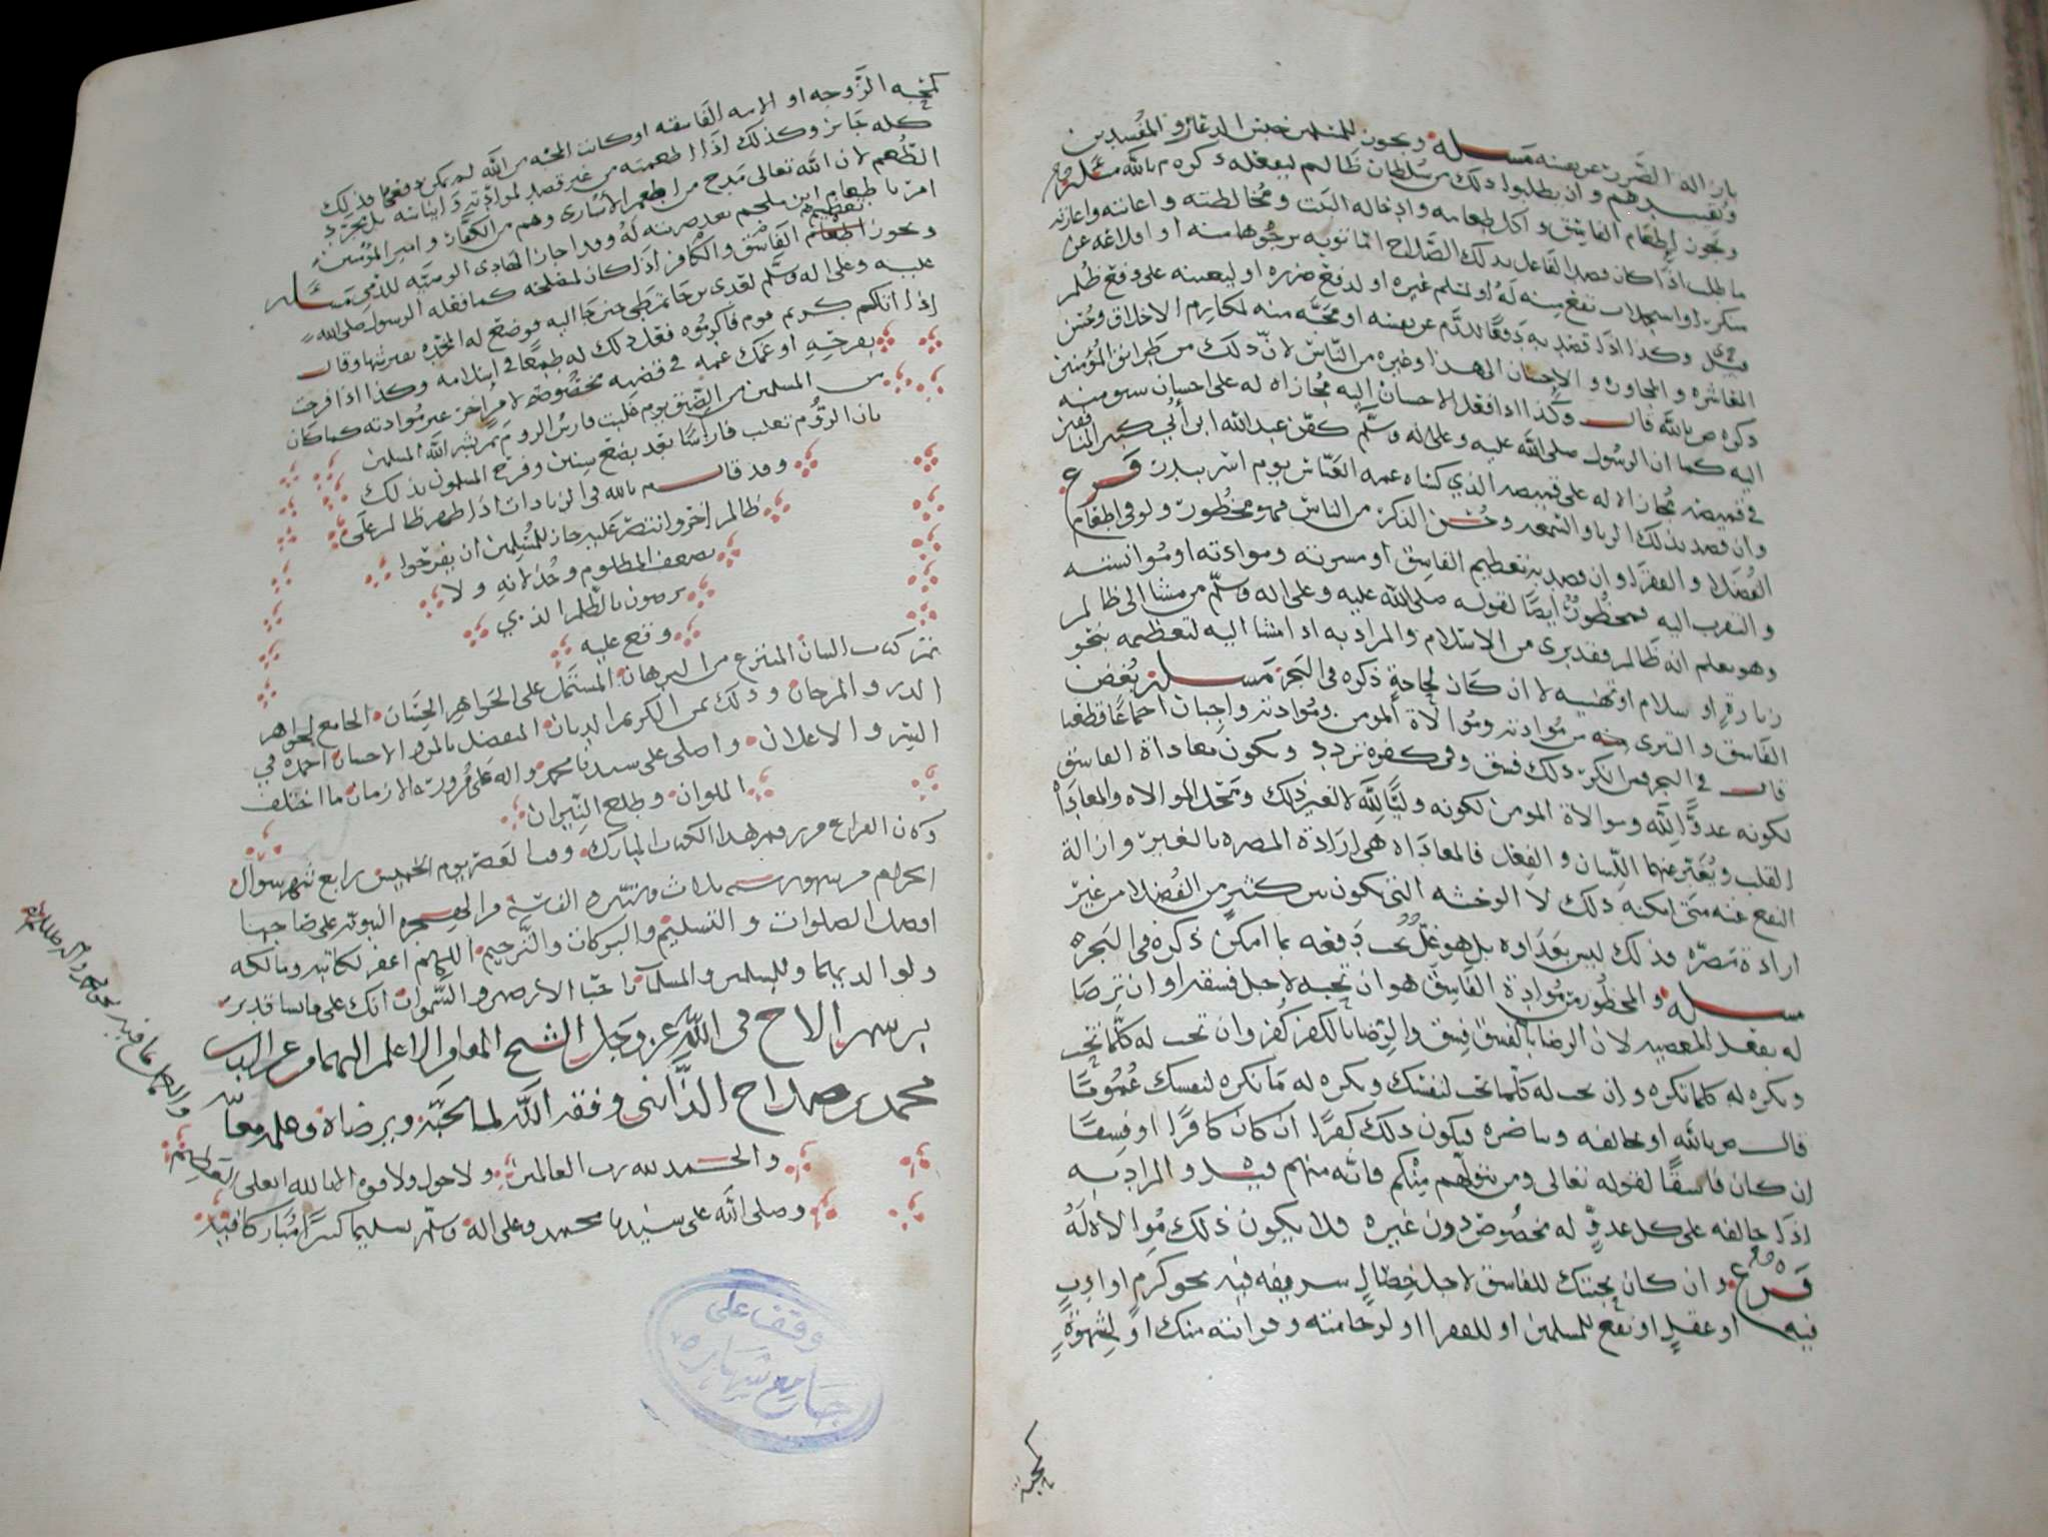 بازالة الضرر عن نفسه مسلة ويجوز للمسلمين حبس الدعار والمفسدين
وتقييدهم وان يطلبوا ذلك من سلطان ظالم ليفعله ذكره م بالله مسلة
ويجوز إطعام الفاسق واكل طعامه وادخاله البيت ومخالطته واعانته واعارته
ما طلب اذا كان قصد الفاعل بذلك الصلاح اما توبه يرجوها منه او اقلاعه عن
منكر او استجلاب نفع منه له او لمسلم غيره او لدفع ضرره او ليعينه على دفع ظلم
وكذا اذا قصد به دفعا للذم عن نفسه او محبة منه لمكارم الاخلاق وحسن
المعاشره والمجاوره والاحسان الى هذا وغيره من الناس لان ذلك من طرائق المؤمنين
ذكره ص بالله قال وكذا اذا فعل الاحسان اليه مجازاه له على احسان سبق منه
اليه كما ان الرسول صلى الله عليه وعلى اله وسلم كفن عبد الله ابن أبي كبير المنافقين
في قميصه مجازاة له على قميصه الذي كساه عمه العباس يوم اسر ببدر فرع
وان قصد بذلك الريا والسمعه وحسن الذكر من الناس فهو محظور ولو في اطعام
الفضلا والفقرا وان قصد به تعظيم الفاسق او مسرته وموادته او موانسته
والتقرب اليه فمحظور ايضا لقوله صلى الله عليه وعلى اله وسلم من مشا الى ظالم
وهو يعلم انه ظالم فقد برى من الاسلام والمراد به اذا مشا اليه لتعظيمه بنحو
زيارة او سلام او تهنيه لا ان كان لحاجة ذكره في البحر مسلة بغض
الفاسق والتبرى منه من موادته وموالاة المومن وموادته واجبان اجماعا قطعيا
قال في البحر فمن انكر ذلك فسق وفي كفره تردد وتكون معاداة الفاسق
لكونه عدوا لله وموالاة المومن لكونه وليا لله لا لغير ذلك ومحل الموالاه والمعاداه
القلب ويعبر عنهما اللسان والفعل فالمعاداه هي ارادة المضره بالغير وازالة
النفع عنه متى امكنه ذلك لا الوحشه التي تكون بين كثير من الفضلا من غير
ارادة مضره فذلك ليس بعداوه بل هو غل يجب دفعه بما امكن ذكره في البحر
مسلة والمحظور من موادة الفاسق هو ان تحبه لاجل فسقه او ان ترضا
له بفعل المعصيه لان الرضا بالفسق فسق والرضا بالكفر كفر وان تحب له كلما تحب
وتكره له كلما تكره وان تحب له كلما تحب لنفسك وتكره له ما تكره لنفسك عموما
قال ص بالله او تحالفه وتناصره فيكون ذلك كفرا ان كان كافرا او فسقا
ان كان فاسقا لقوله تعالى ومن يتولهم منكم فانه منهم والمراد به
اذا حالفه على كل عدو له مخصوص دون غيره فلا يكون ذلك موالاة له
فرع وان كان محبتك للفاسق لاجل خصال شريفه فيه نحو كرم او ادب
فيه او عقل او نفع للمسلمين او للفقرا او لرحامته وقرابته منك او لشهوة
كمحبة
كمحبه الزوجه او الامه الفاسقه او كانت المحبه من الله لم يمكن دفعها فذلك
كله جايز وكذلك اذا اطعمته من غير قصد لموادته وايناسه بل لمجرد
الطعم لان الله تعالى مدح من اطعم الأسارى وهم من الكفار وامير المؤمنين
امر باطعام ابن ملجم بعد ضربته له وقد اجاز الهادى الوصيه للذمي مسلة
ويجوز تعظيم الفاسق والكافر اذا كان لمصلحه كما فعله الرسول صلى الله
عليه وعلى اله وسلم لعدي بن حاتم طي حين جا اليه فوضع له المخده بفرشها وقال
إذا اتاكم كريم قوم فأكرموه فعل ذلك له طمعا في اسلامه وكذا اذا فرحت
بفرحه او غمك غمه في قضيه مخصوصه لامر اخر غير موادته كما كان
من المسلمين من الضيق يوم غلبت فارس الروم ثم بشر الله المسلمين
بان الروم تغلب فارسا بعد بضع سنين وفرح المسلمون بذلك
وقد قال م بالله في الزيادات اذا ظهر ظالم على
ظالم اخر وانتصر عليه جاز للمسلمين ان يفرحوا
بضعف المظلوم وخذلانه ولا
يرضون بالظلم الذي
وقع عليه
تم كتاب البيان المنتزع من البرهان المشتمل على الجواهر الحسان الجامع لجواهر
الدر والمرجان وذلك بمن الكريم الديان المتفضل بالمن والاحسان احمده في
السر والاعلان واصلي على سيدنا محمد واله على مرور الازمان ما اختلف
الملوان وطلع النيران
وكان الفراغ من رقم هذا الكتاب المبارك وقت العصر يوم الخميس رابع شهر شوال
الحرام من شهور سنة ثلاث الف سنة من الهجره النبويه على صاحبها
افضل الصلوات والتسليم والبركات والترحيم اللهم اغفر لكاتبه ومالكه
ولوالديهما وللمسلمين والمسلمات الارضين والسموات انك على ما تشا قدير
برسم الاخ في الله عز وجل الشيخ الاعلم
محمد بن صلاح وفقه الله لما يحبه ويرضاه
والحمد لله رب العالمين ولا حول ولا قوه الا بالله العلى العظيم
وصلى الله على سيدنا محمد وعلى اله وسلم تسليما كثيرا مباركا فيه
وقف على
جامع شهاره